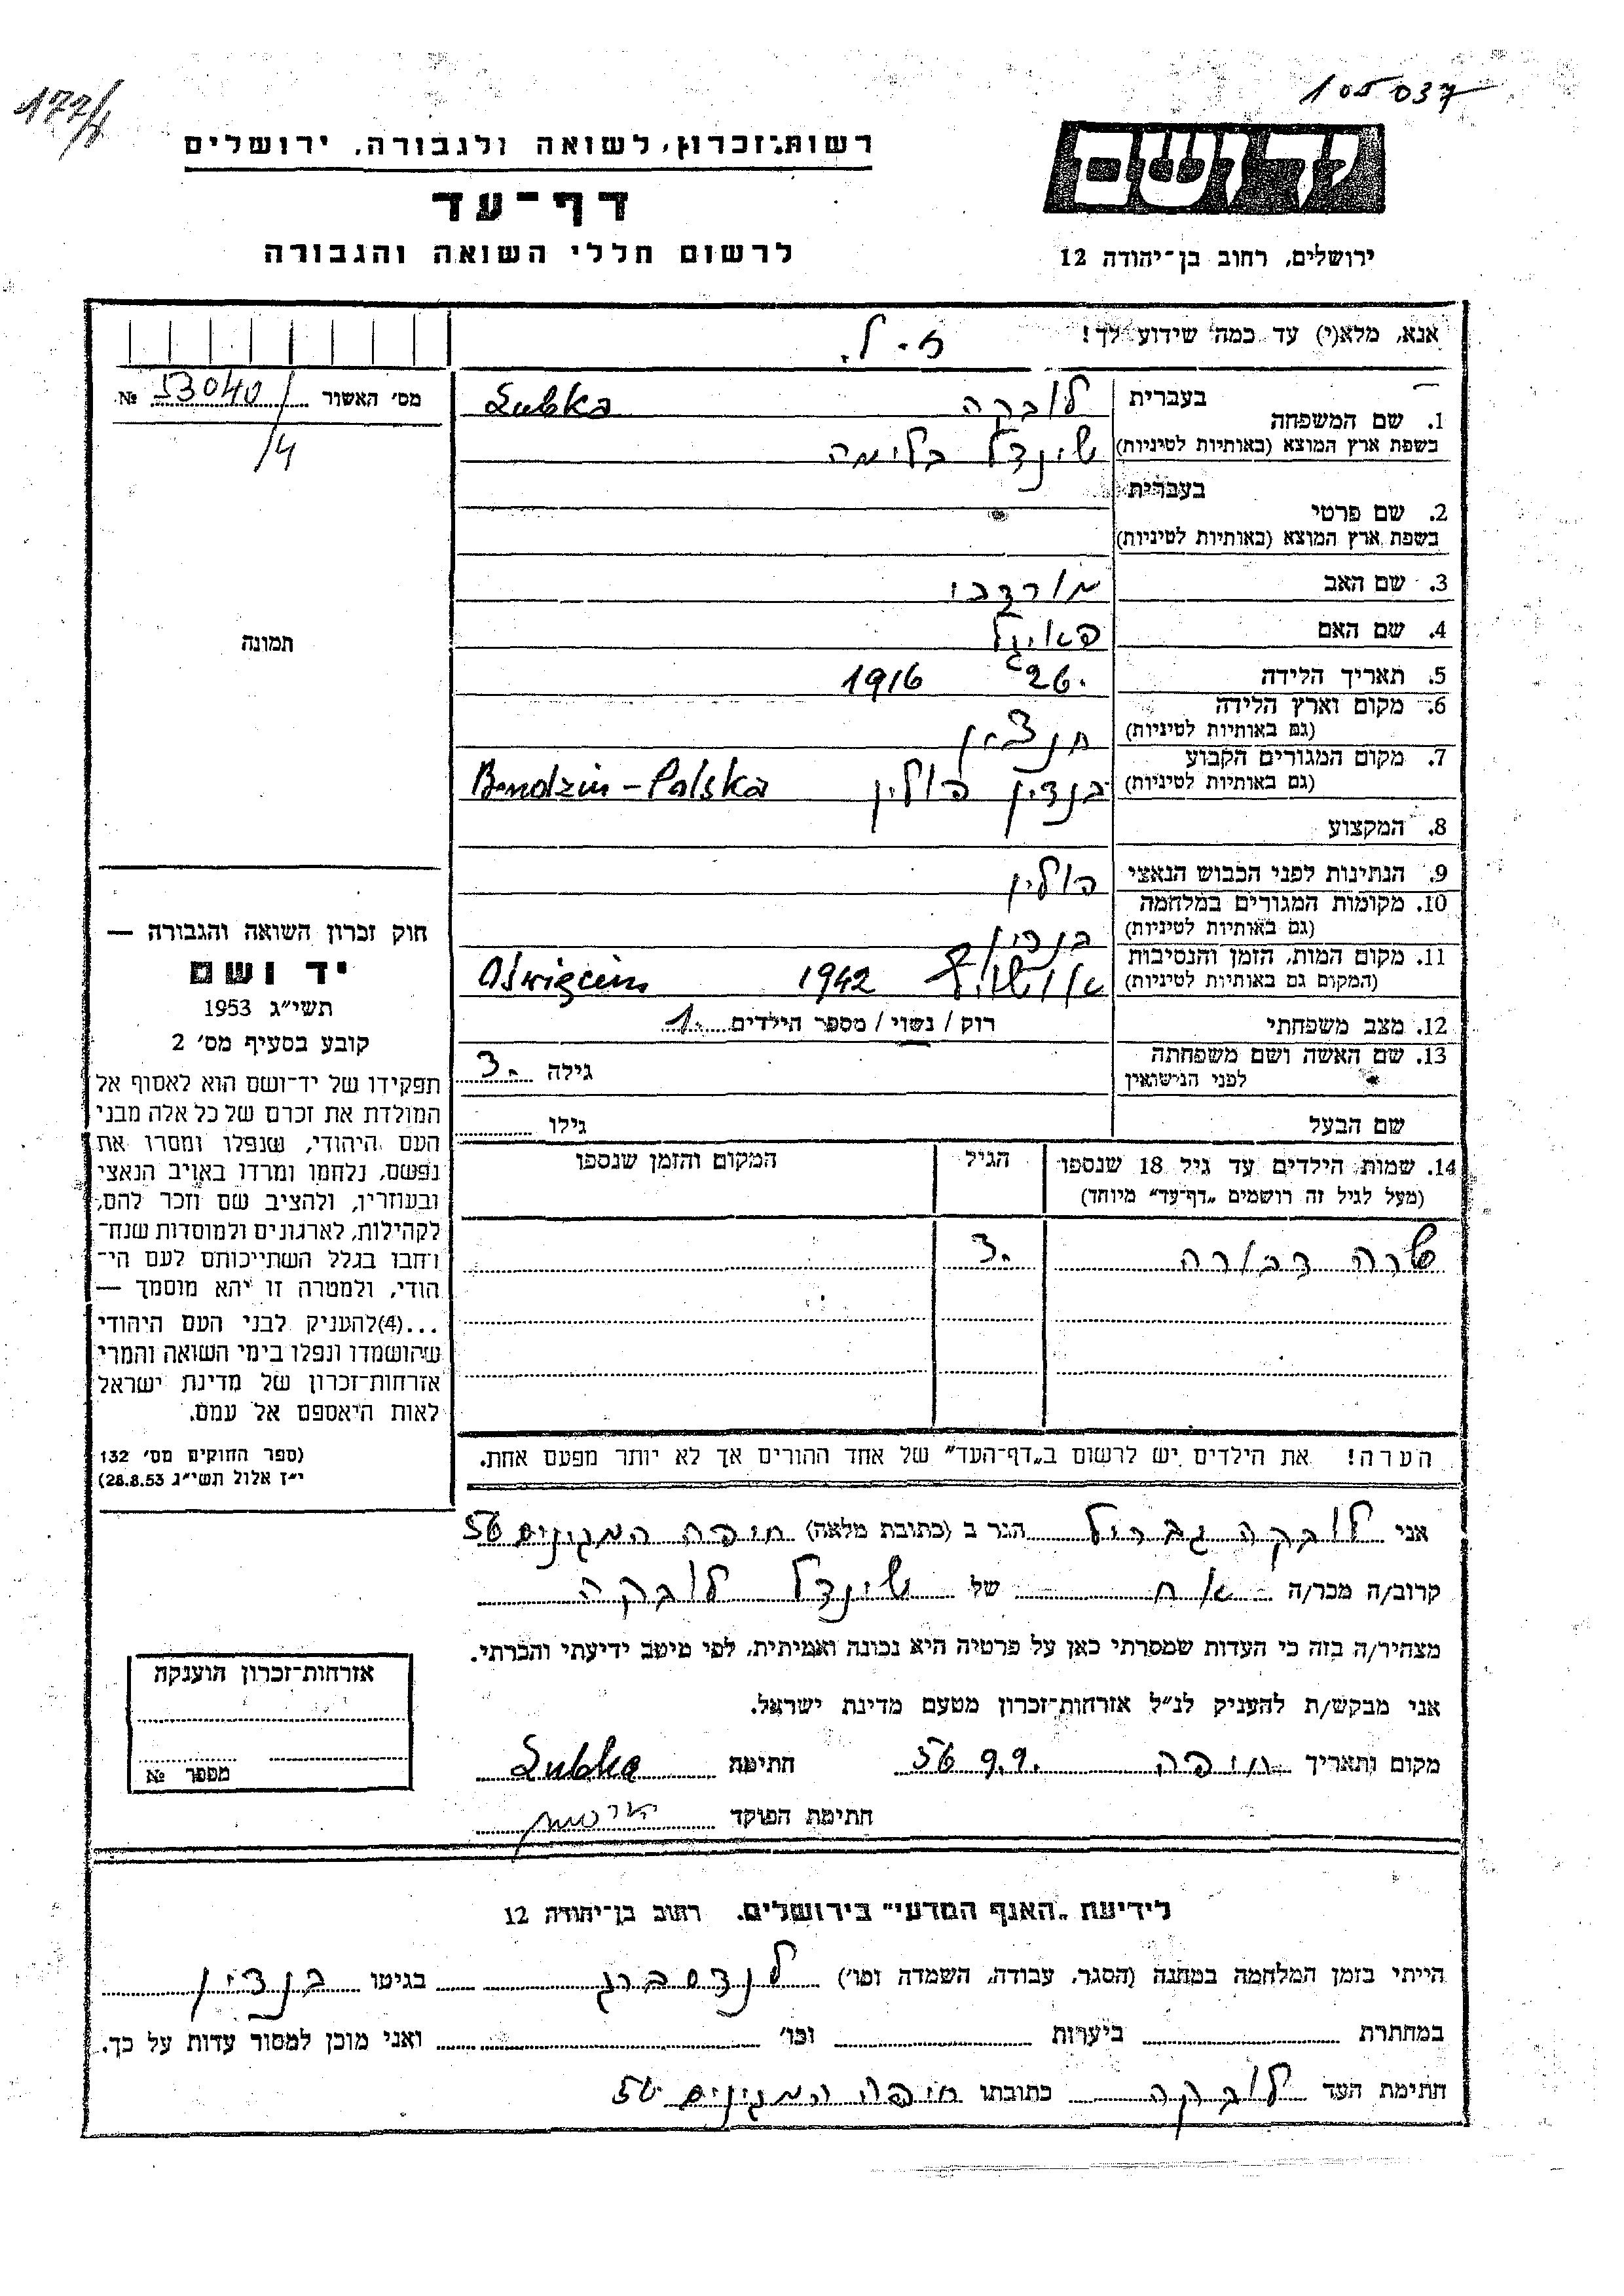 105037
177/
רשות־זכרון, לשואה ולגבורה, ירושלים
דף־עד
לרשום חללי השואה והגבורה
יד ושם
ירושלים, רחוב בן־יהודה 12
אנא, מלא(י) עד כמה שידוע לך!
מס׳ האשור 53040 №
/4
1. שם המשפחה
בעברית לובקה Lubka
בשפת ארץ המוצא (באותיות לטיניות) שינדל בלימה
2. שם פרטי
בעברית
בשפת ארץ המוצא (באותיות לטיניות)
3. שם האב מורדכי
4. שם האם פאיגל
5. תאריך הלידה 26. 1916
6. מקום וארץ הלידה
(גם באותיות לטיניות)
7. מקום המגורים הקבוע
(גם באותיות לטיניות) בנדין פולין Bendzin – Polska
8. המקצוע
9. הנתינות לפני הכבוש הנאצי פולין
10. מקומות המגורים במלחמה
(גם באותיות לטיניות) בנדין
11. מקום המות, הזמן והנסיבות
(המקום גם באותיות לטיניות) 1942 Oświęcim
12. מצב משפחתי רווק / נשוי / מספר הילדים 1.
13. שם האשה ושם משפחתה
לפני הנישואין
גילה 3.
שם הבעל גילו
14. שמות הילדים עד גיל 18 שנספו
(מעל לגיל זה רושמים „דף־עד״ מיוחד)
הגיל
המקום והזמן שנספו
שרה דבורה 3.
הערה! את הילדים יש לרשום ב„דף־העד״ של אחד ההורים אך לא יותר מפעם אחת.
תמונה
חוק זכרון השואה והגבורה —
יד ושם
תשי״ג 1953
קובע בסעיף מס׳ 2
תפקידו של יד־ושם הוא לאסוף אל
המולדת את זכרם של כל אלה מבני
העם היהודי, שנפלו ומסרו את
נפשם, נלחמו ומרדו באויב הנאצי
ובעוזריו, ולהציב שם וזכר להם,
לקהילות, לארגונים ולמוסדות שנח־
רבו בגלל השתייכותם לעם הי־
הודי, ולמטרה זו יהא מוסמך —
...(4)להעניק לבני העם היהודי
שהושמדו ונפלו בימי השואה והמרי
אזרחות־זכרון של מדינת ישראל
לאות היאספם אל עמם.
(ספר החוקים מס׳ 132
י״ז אלול תשי״ג 28.8.53)
אני לובקה גבריל הגר ב (כתובת מלאה) חיפה המגינים 56
קרוב/ה מכר/ה אח של שינדל לובקה
מצהיר/ה בזה כי העדות שמסרתי כאן על פרטיה היא נכונה ואמיתית, לפי מיטב ידיעתי והכרתי.
אני מבקש/ת להעניק לנ״ל אזרחות־זכרון מטעם מדינת ישראל.
מקום ותאריך חיפה 9.9. 56 חתימה Lubka
חתימת הפוקד
אזרחות־זכרון הוענקה
מספר №
לידיעת „האגף המדעי״ בירושלים. רחוב בן־יהודה 12
הייתי בזמן המלחמה במחנה (הסגר, עבודה, השמדה וכו׳) לנדסברג בגיטו בנדין
במחתרת ביערות וכו׳ ואני מוכן למסור עדות על כך.
חתימת העד לובקה כתובתו חיפה המגינים 56